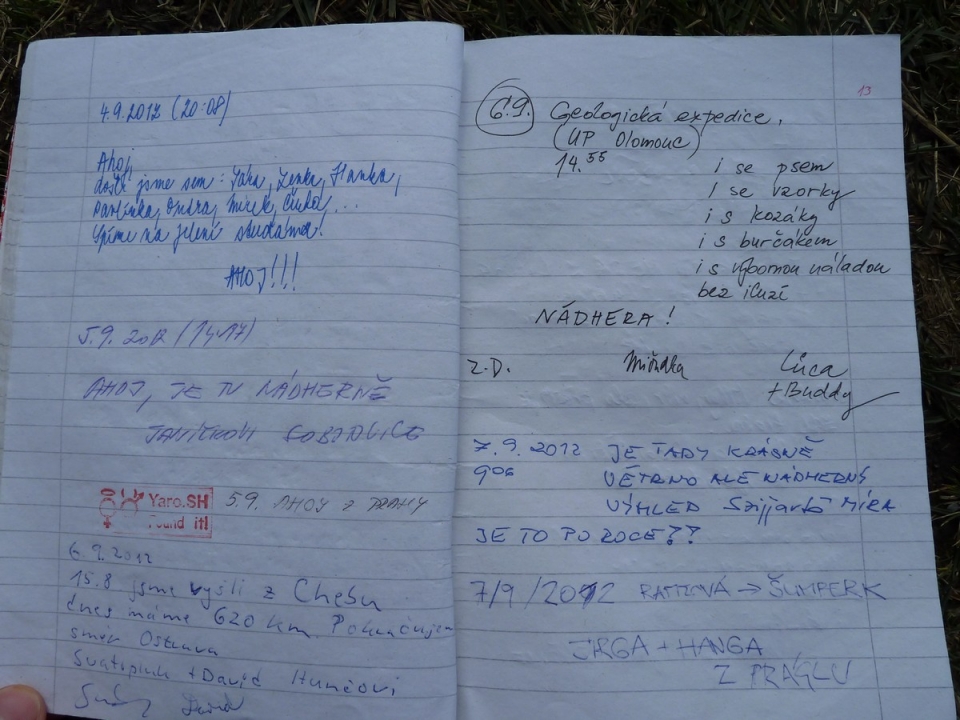 4.9.2012 (20:08)
Ahoj,
došli jsme sem: Jára, Lenka, Hanka,
Pavlínka, Ondra, Mirek,
Spíme na jelení studánce!
AHOJ!!!
5.9.2012 (14:17)
AHOJ, JE TU NÁDHERNĚ
SOBOTOVICE
Yaro.SH
found it!
5.9. AHOY Z PRAHY
6.9.2012
15.8 jsme vyšli z Chebu
dnes máme 620 km. Pokračujem
směr Ostrava
Svatopluk + David Hunčovi
13
6.9. Geologická expedice,
(UP Olomouc)
14.55
i se psem
I se vzorky
i s kozáky
i s burčákem
i s výbornou náladou
bez iluzí
NÁDHERA!
Z.D. Lůca
+ Buddy
7.9.2012 JE TADY KRÁSNĚ
9 06 VĚTRNO ALE NÁDHERNÝ
VÝHLED Szijjartó MÍRA
JE TO PO ROCE??
7/9/2012 RAMZOVÁ → ŠUMPERK
JIRGA + HANGA
Z PRÁGLU